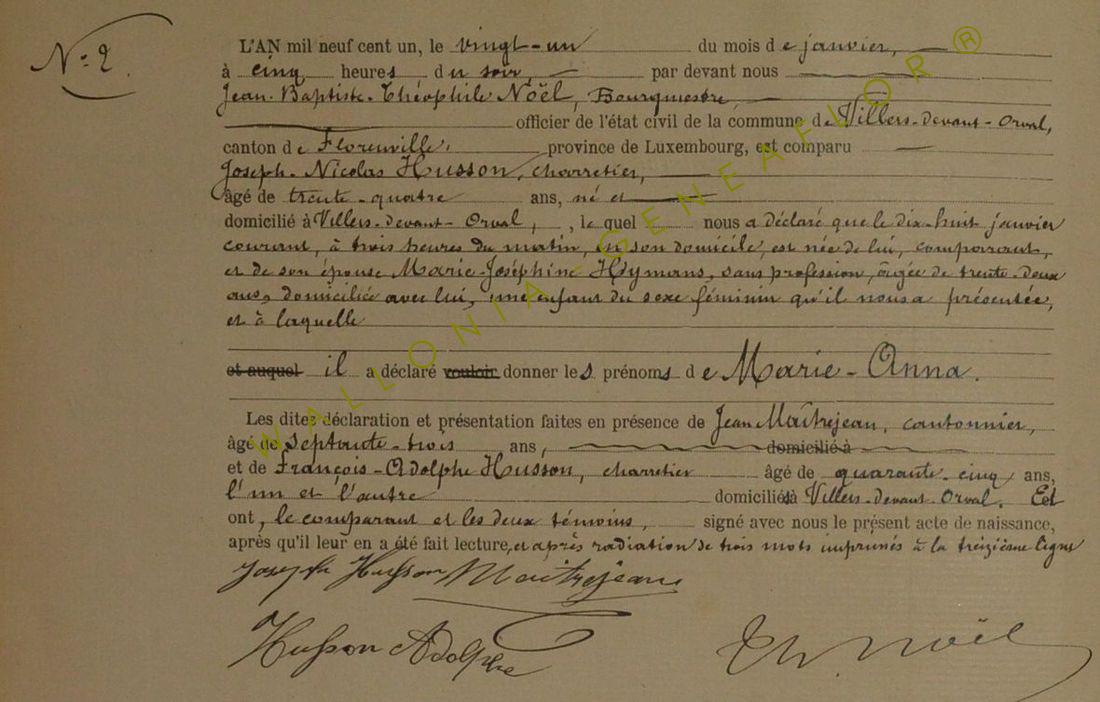 N° 2.
L'AN mil neuf cent un, le vingt-un du mois de janvier,
à cinq heures du soir, par devant nous
Jean-Baptiste-Théophile Noël, Bourgmestre,
officier de l'état civil de la commune de Villers-devant-Orval,
canton de Florenville, province de Luxembourg, est comparu
Joseph-Nicolas Husson, charretier,
âgé de trente-quatre ans, né et
domicilié à Villers-devant-Orval, , le quel nous a déclaré que le dix-huit janvier
courant, à trois heures du matin, en son domicile, est née de lui, comparant,
et de son épouse Marie-Joséphine Hymans, sans profession, âgée de trente-deux
ans, domiciliée avec lui, une enfant du sexe féminin qu'il nous a présentée,
et à laquelle
et auquel il a déclaré vouloir donner les prénoms de Marie-Anna.
Les dites déclaration et présentation faites en présence de Jean Maîtrejean, cantonnier,
âgé de septante-trois ans, domicilié à
et de François-Adolphe Husson, charretier âgé de quarante-cinq ans,
l'un et l'autre domiciliés à Villers-devant-Orval. Et
ont, le comparant et les deux témoins, signé avec nous le présent acte de naissance,
après qu'il leur en a été fait lecture, et après radiation de trois mots imprimés à la treizième ligne
Joseph Husson Maitrejean
Husson Adolphe Th. Noël
WALLONIA-GENEAFLOR ®